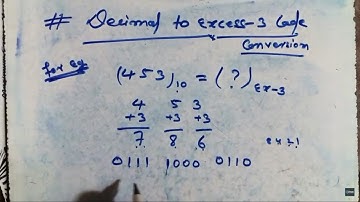 # Decimal to Excess-3 Code
Conversion
for eg
(453)10 = (?)Ex-3
4 5 3
+3 +3 +3
7 8 6
8 4 2 1
0111 1000 0110